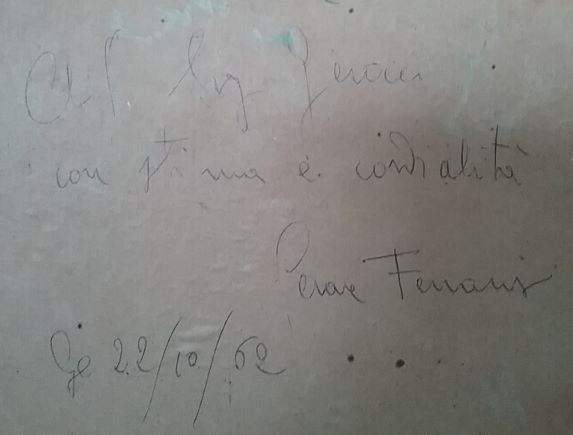 Al
con stima e cordialità
Cesare Ferraris
Ge 22/10/62